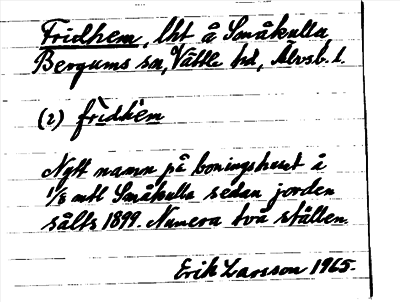 Fridhem, lht å Småkulla,
Bergums sn, Vättle hd, Älvsb. l.
(2) frìdhèm
Nytt namn på boningshuset å
1/8 mtl Småkulla sedan jorden
sålts 1899. Numera två ställen.
Erik Larsson 1965.